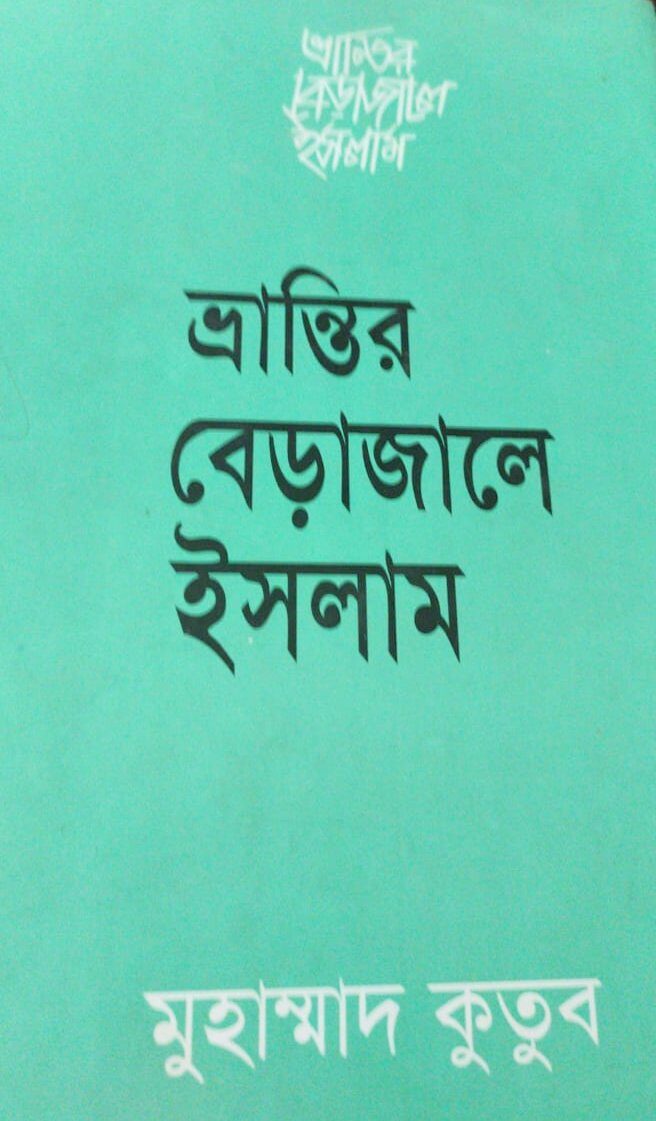 ভ্রান্তির
বেড়াজালে
ইসলাম
ভ্রান্তির
বেড়াজালে
ইসলাম
মুহাম্মাদ কুতুব